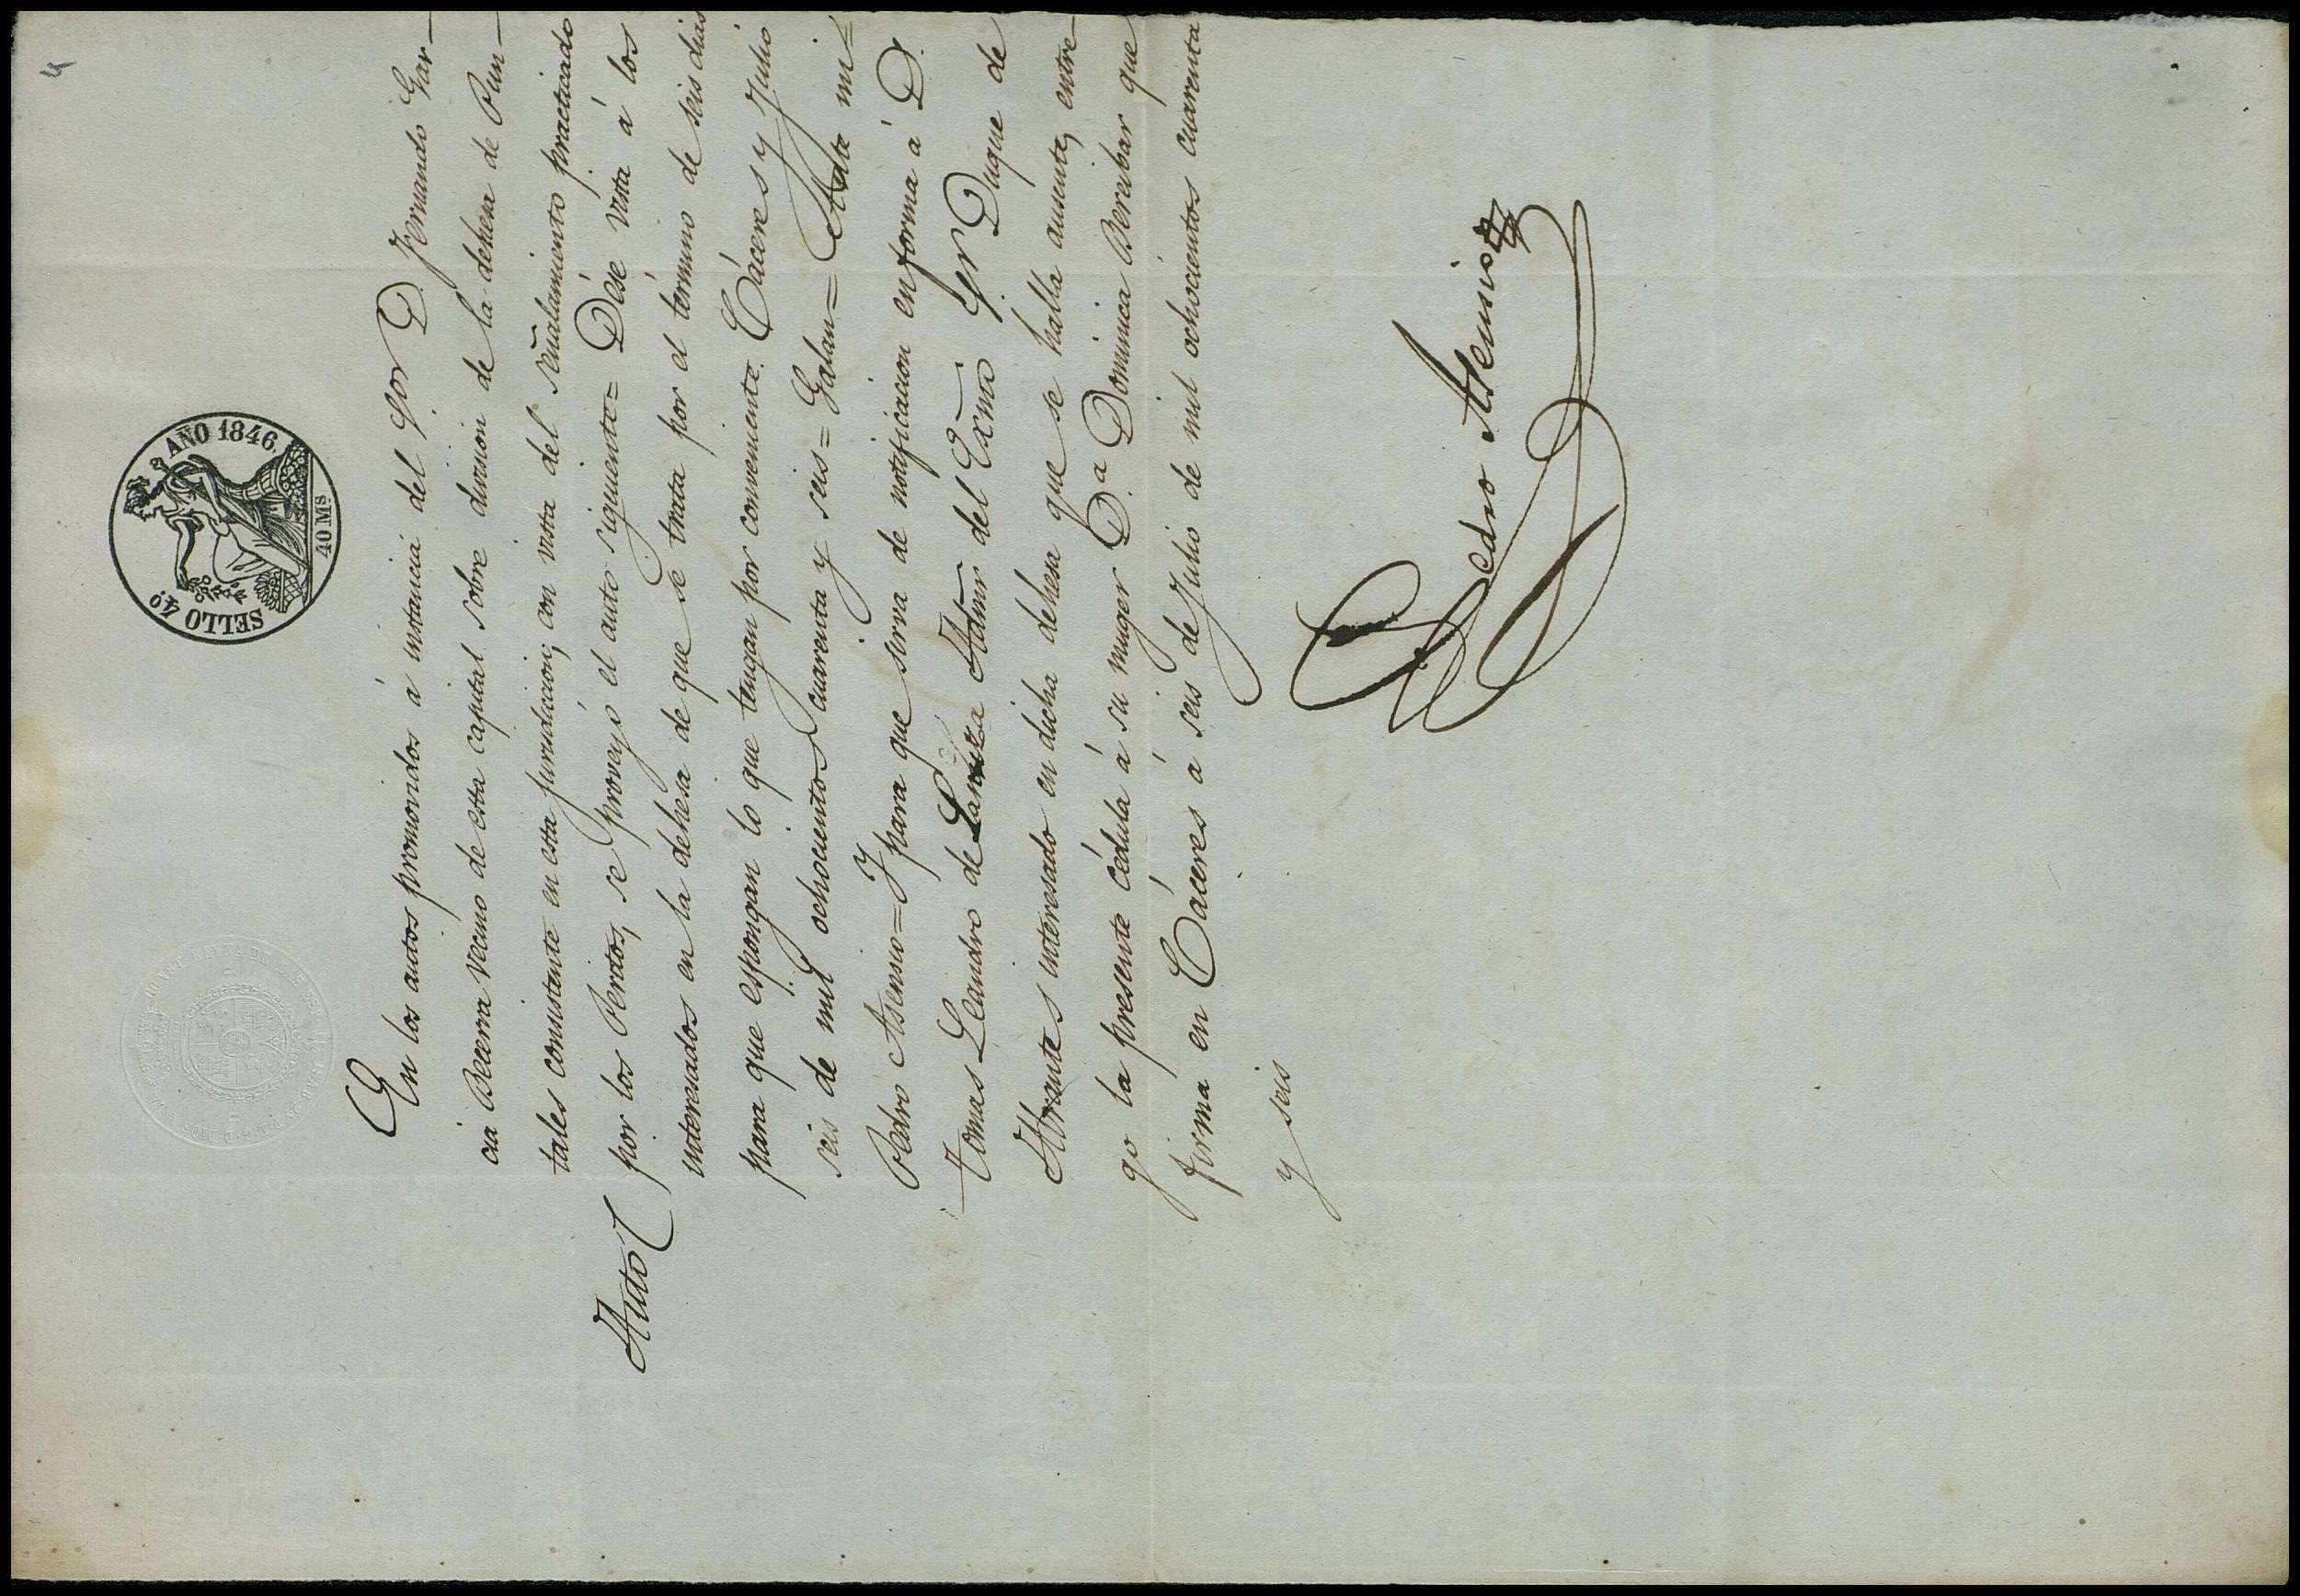 SELLO 4º AÑO 1846.
40 Ms
En los autos promovidos á instancia del Sor D. Fernando Gar-
cia Becerra vecino de esta capital sobre division de la dehesa de Pun-
tales consistente en esta jurisdiccion; con vista del señalamiento practicado
por los Peritos, se proveyó el auto siguiente = Dése vista á los
Auto
interesados en la dehesa de que se trata por el término de seis dias
para que espongan lo que tengan por conveniente. Cáceres y Julio
seis de mil ochocientos cuarenta y seis = Galan = Ante mi =
Pedro Asensio = Y para que sirva de notificacion en forma á D.
Tomas Leandro de Admr del Exmo Sr Duque de
Abrantes interesado en dicha dehesa que se halla ausente, entre-
go la presente cédula á su muger D.a Dominica Bereibar que
firma en Cáceres á seis de Julio de mil ochocientos cuarenta
y seis
Pedro Asensio